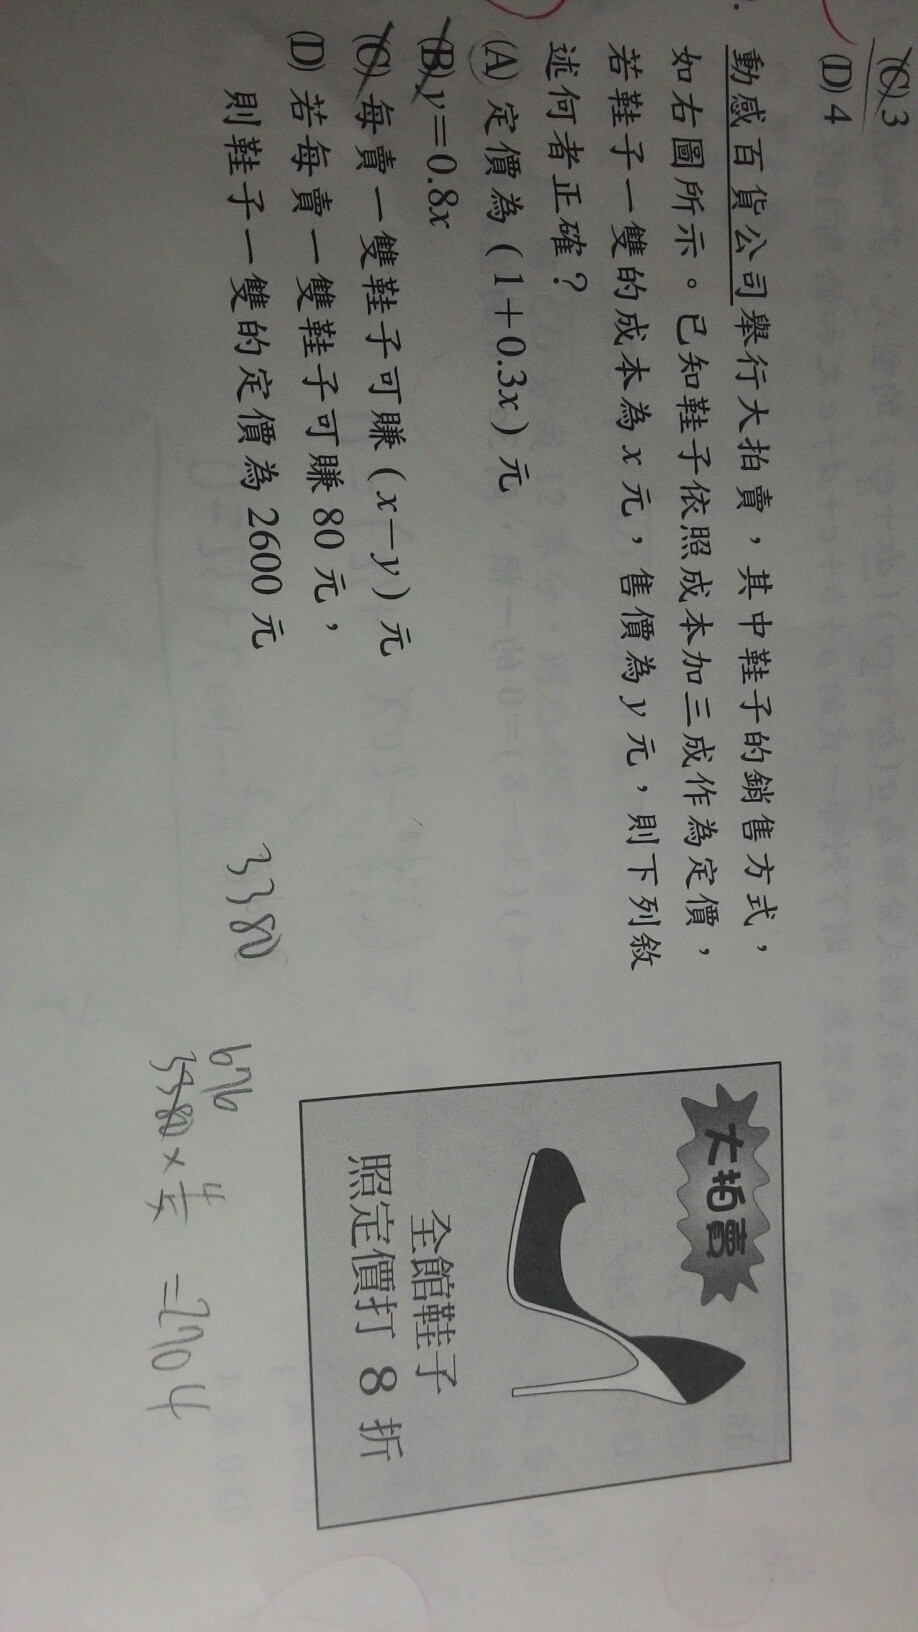 (C) 3
(D) 4
動感百貨公司舉行大拍賣，其中鞋子的銷售方式，
如右圖所示。已知鞋子依照成本加三成作為定價，
若鞋子一雙的成本為 x 元，售價為 y 元，則下列敘
述何者正確？
(A) 定價為（1＋0.3x）元
(B) y＝0.8x
(C) 每賣一雙鞋子可賺（x－y）元
(D) 若每賣一雙鞋子可賺 80 元，
則鞋子一雙的定價為 2600 元
大拍賣
全館鞋子
照定價打 8 折
3380
676
3380 × 4/5 = 2704